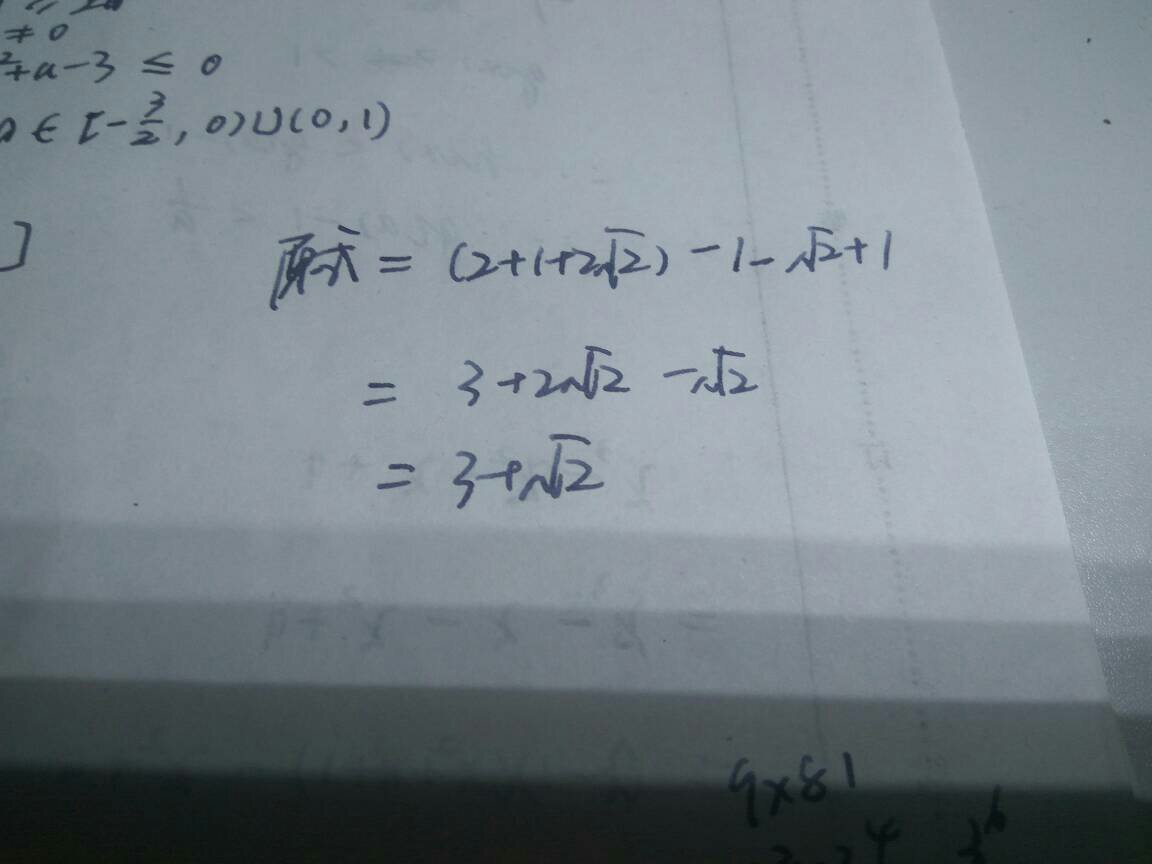 ≠ 0
²+a-3 ≤ 0
a ∈ [-3/2, 0)∪(0,1)
]
原式 = (2+1+2√2) -1-√2+1
= 3+2√2 -√2
= 3+√2
9×81